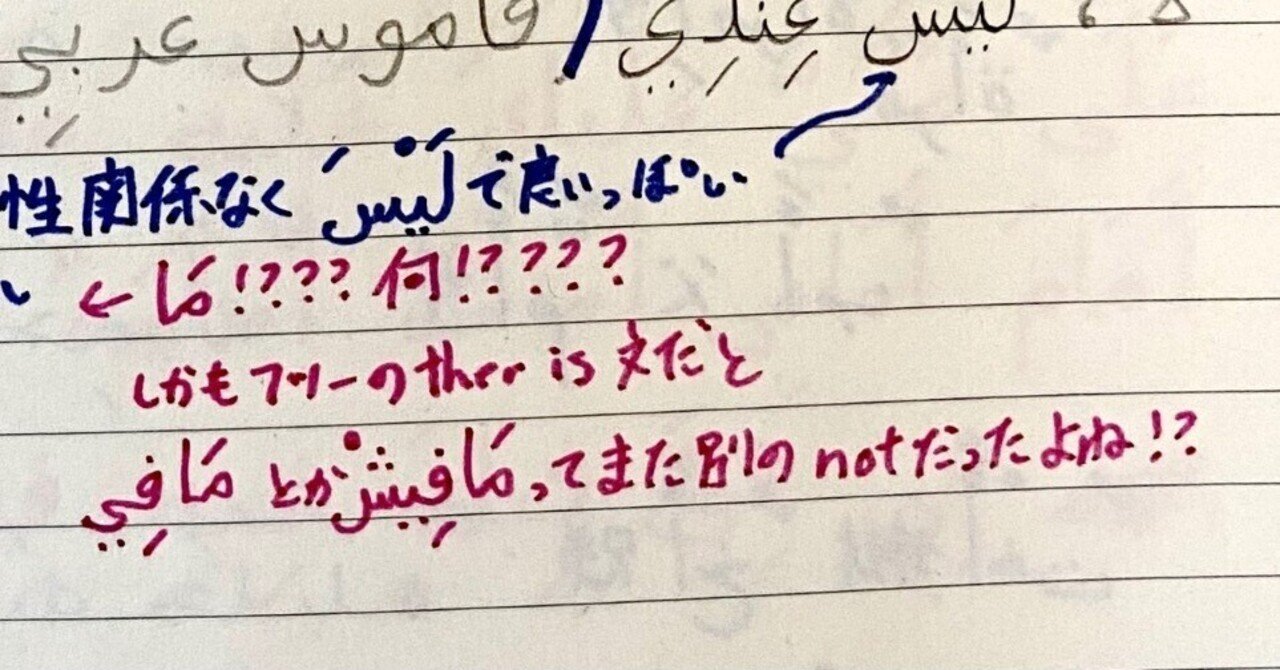 لا ، ليس عِندِي / قاموس عربِي
性関係なく لَيْسَ で良いっぽい
← مَا !??? 何!????
しかもフリーのther is 文だと
مَا فِي とか مَا فِيشْ ってまた別の notだったよね!?